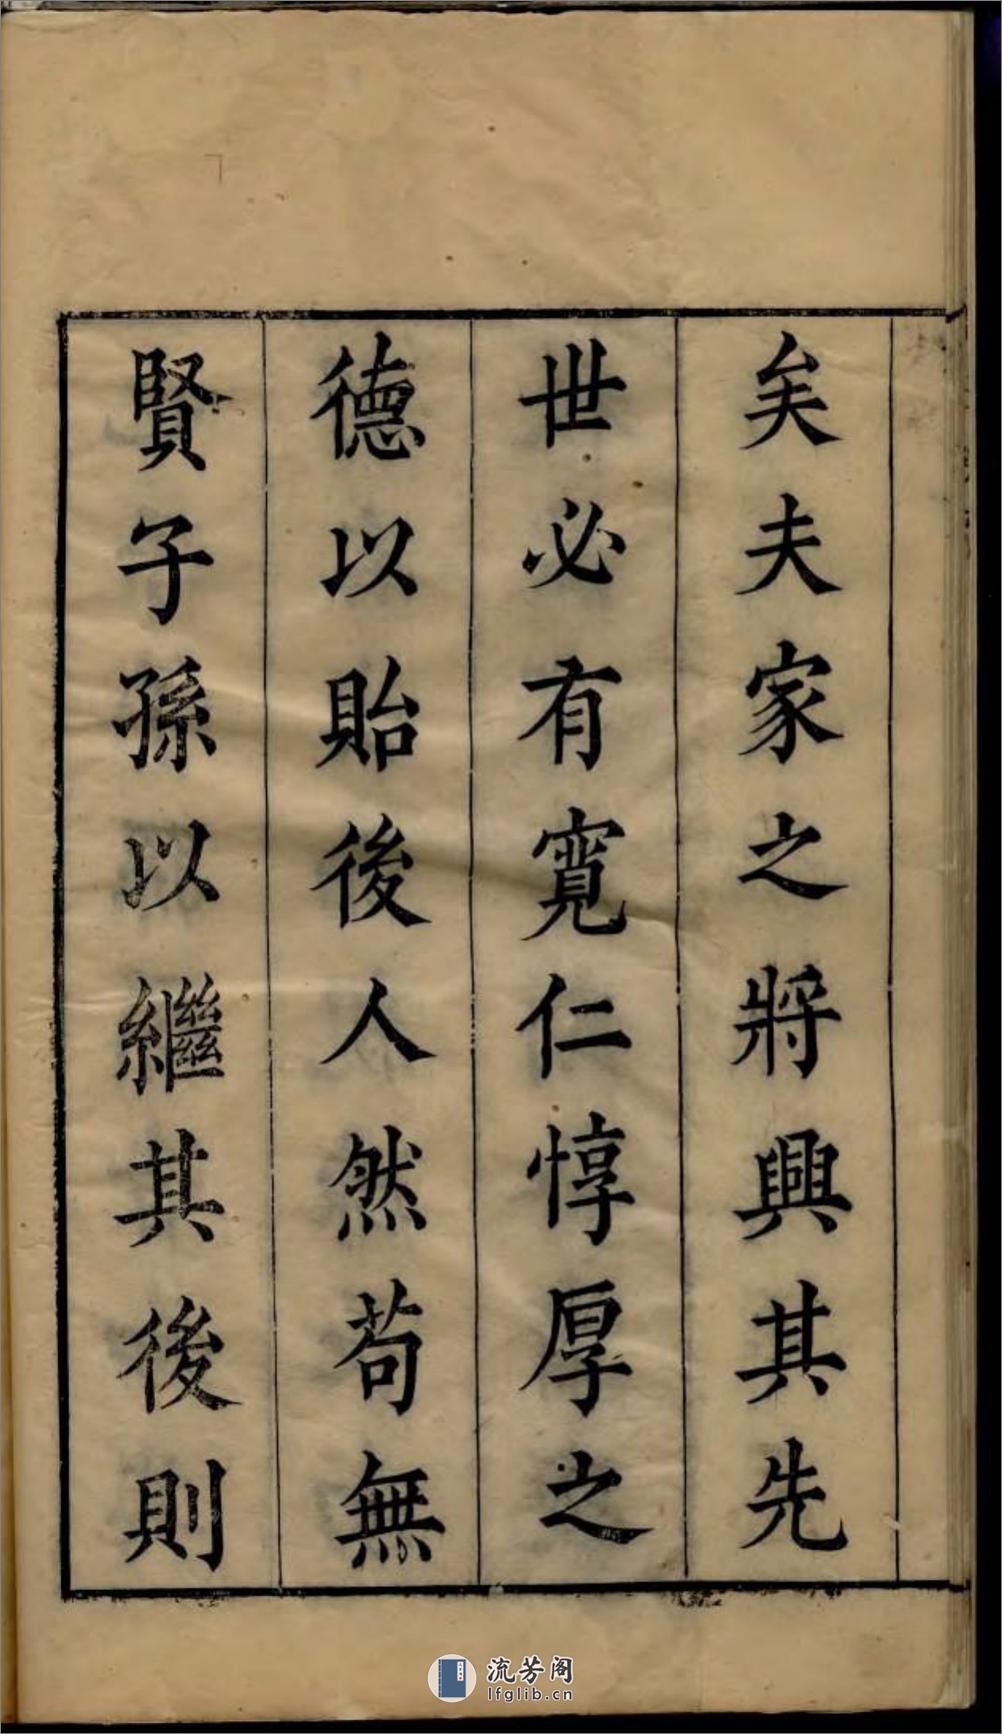 矣夫家之將興其先
世必有寛仁惇厚之
德以貽後人然苟無
賢子孫以繼其後則
流芳阁
lfglib.cn